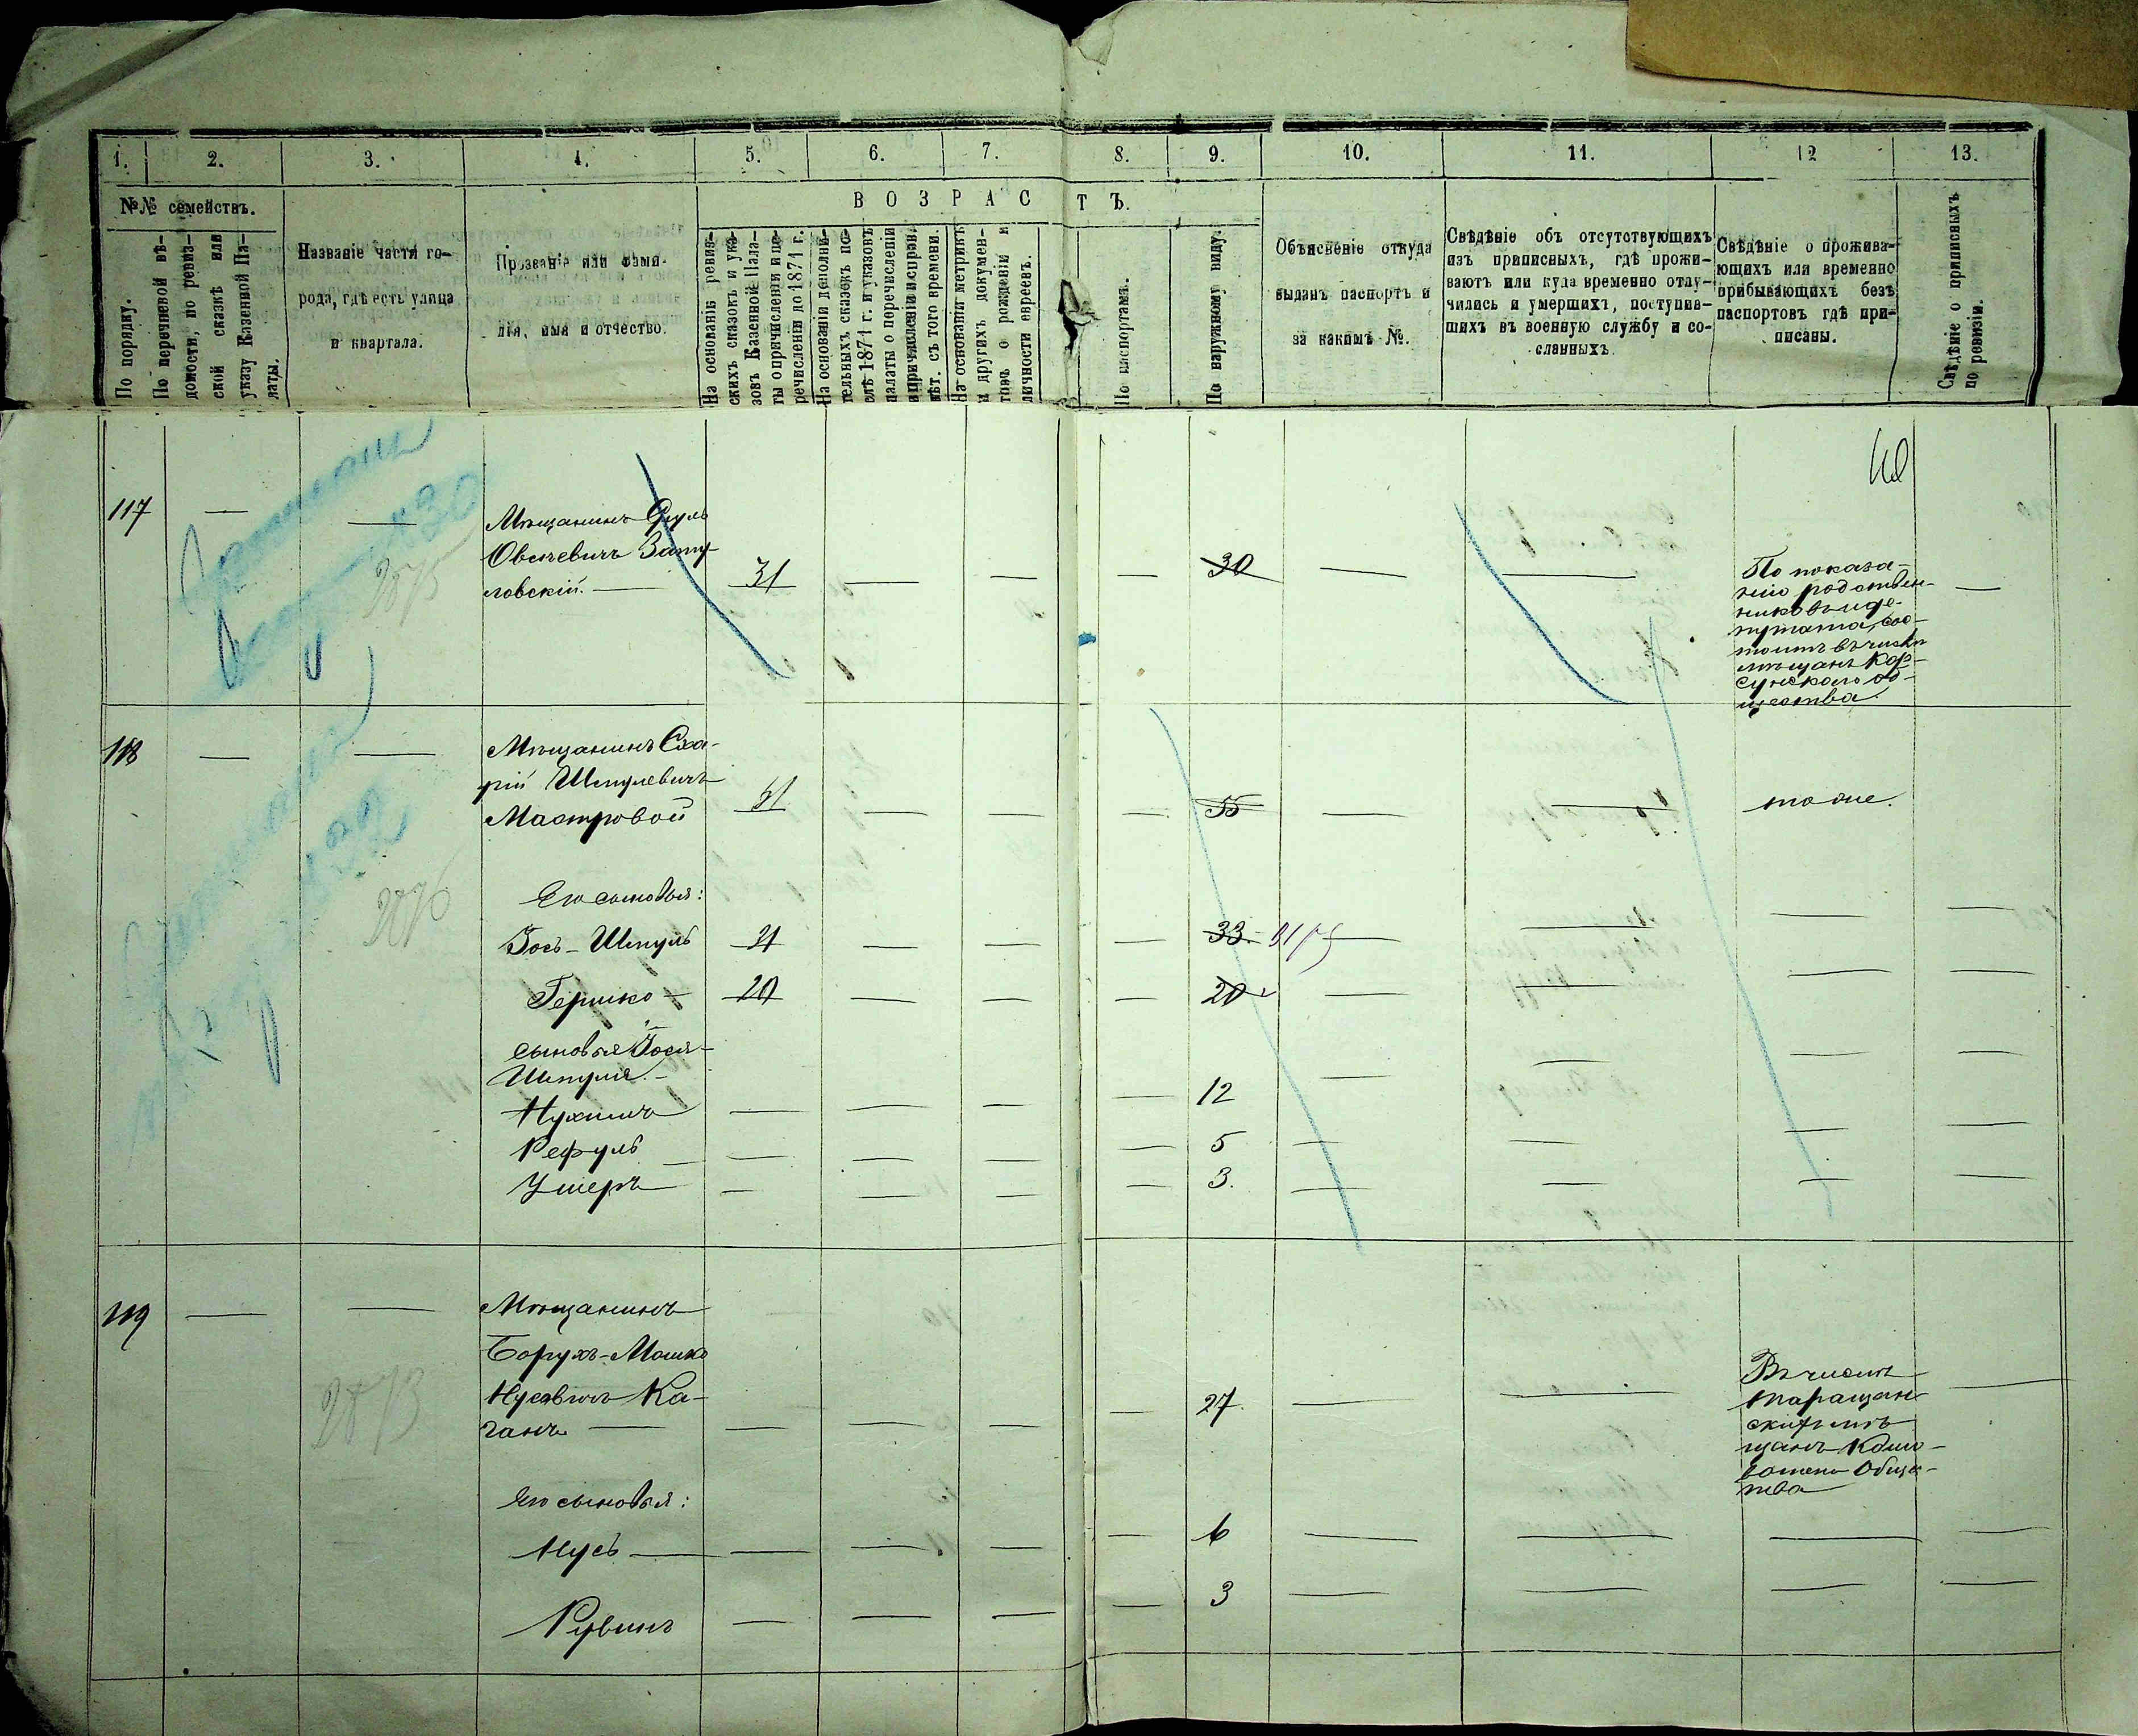 1. 2. 3. 4. 5. 6. 7. 8. 9. 10. 11. 12 13.
№№ семействъ.
ВОЗРАСТЪ.
По порядку.
По перечневой вѣ-
домости, по ревиз-
ской сказкѣ или
указу Казенной Па-
латы.
Названіе части го-
рода, гдѣ есть улица
и квартала.
Прозваніе или фами-
лія, имя и отчество.
На основаніи ревиз-
скихъ сказокъ и ука-
зовъ Казенной Пала-
ты о причисленіи и пе-
речисленіи до 1871 г.
На основаніи дополни-
тельныхъ сказокъ по-
слѣ 1871 г. и указовъ
палаты о перечисленіи
и причисленіи и испри.
вѣт. съ того времени.
На основаніи метрикъ
и другихъ докумен-
товъ о рожденіи и
личности евреевъ.
По паспортамъ.
По наружному виду.
Объясненіе откуда
выданъ паспортъ и
за какимъ №.
Свѣдѣніе объ отсутствующихъ
изъ приписныхъ, гдѣ прожи-
ваютъ или куда временно отлу-
чились и умершихъ, поступив-
шихъ въ военную службу и со-
сланныхъ.
Свѣдѣніе о прожива-
ющихъ или временно
прибывающихъ безъ
паспортовъ гдѣ при-
писаны.
Свѣдѣніе о приписныхъ
по ревизіи.
117
2875
Мѣщанинъ Сруль
Овсеевичъ Запу-
ловскій.
31
30
По показа-
нію родствен-
никовъ и де-
путата, сос-
тоитъ въ числѣ
мѣщанъ Кор-
сунскаго об-
щества.
118
2876
Мѣщанинъ Сха-
рій Шмулевичъ
Мастровой
51
55
тоже.
Его сыновья:
Іось-Шмуль 21 33
Гершко 20 20
сыновья Іося-
Шмуля.
Нухимъ 12
Рефуль 5
Ушеръ 3.
119
2873
Мѣщанинъ
Борухъ-Мошко
Нусявичъ Ка-
ганъ
27.
Въ числѣ
таращан-
скихъ мѣ-
щанъ
Общес-
тва
Его сыновья:
Нусь 6
Рувинъ 3